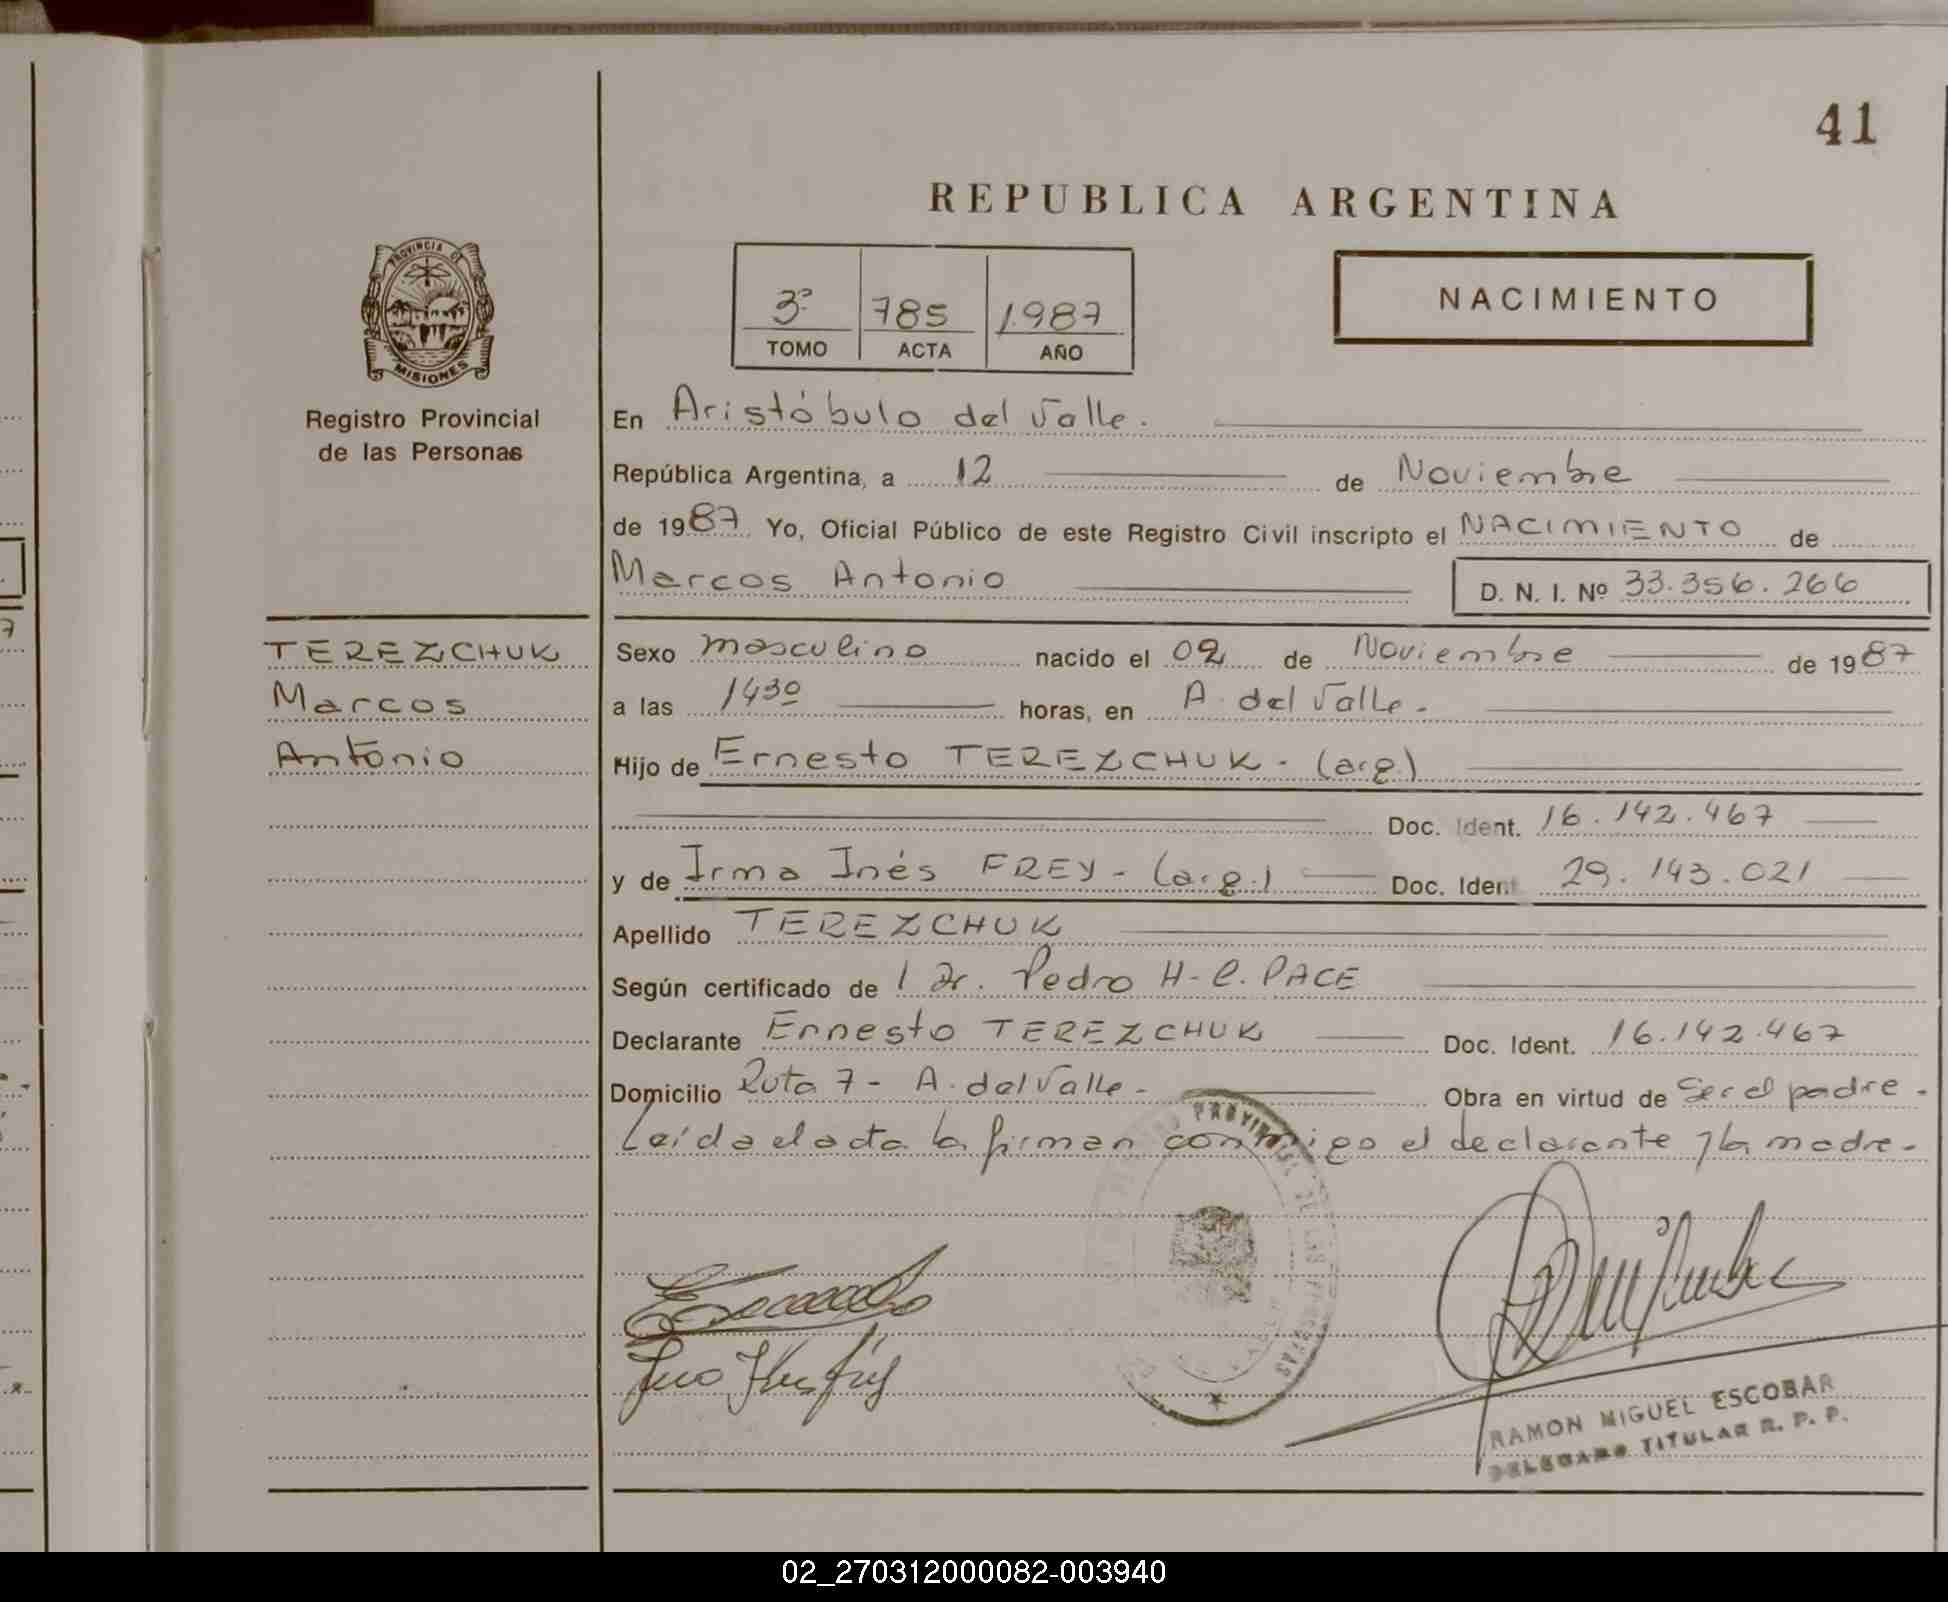 41
REPUBLICA ARGENTINA
PROVINCIA DE
MISIONES
Registro Provincial
de las Personas
3º 785 1987
TOMO ACTA AÑO
NACIMIENTO
En Aristóbulo del Valle.
República Argentina, a 12 de Noviembre
de 1987 Yo, Oficial Público de este Registro Civil inscripto el NACIMIENTO de
Marcos Antonio D. N. I. Nº 33.356.266
TEREZCHUK
Marcos
Antonio
Sexo masculino nacido el 02 de Noviembre de 1987
a las 1430 horas, en A. del Valle.
Hijo de Ernesto TEREZCHUK - (arg.)
Doc. Ident. 16.142.467
y de Irma Inés FREY - (arg.) Doc. Ident 29.143.021
Apellido TEREZCHUK
Según certificado de l Dr. Pedro H. C. PACE
Declarante Ernesto TEREZCHUK Doc. Ident. 16.142.467
Domicilio Ruta 7 - A. del Valle - Obra en virtud de Ser el padre -
Leída el acta la firman conmigo el declarante y la madre -
RAMON MIGUEL ESCOBAR
DELEGADO TITULAR R. P. P.
02_270312000082-003940